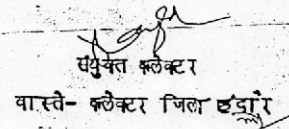 संयुक्त कलेक्टर
वास्ते- कलेक्टर जिला इंदौर